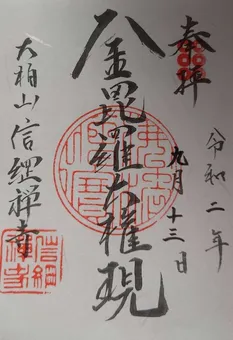 奉拝
令和二年
九月十三日
金毘羅大権現
大柏山信綱禅寺
信綱禅寺